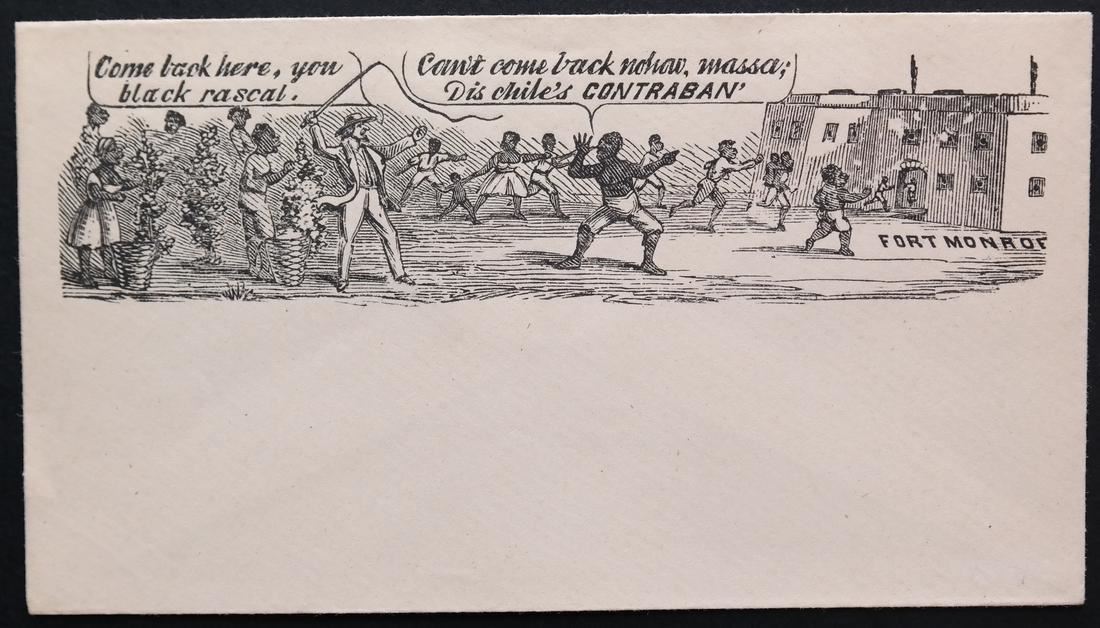 Come back here, you
black rascal.
Can't come back nohow, massa;
Dis chile's CONTRABAN'
FORT MONROE